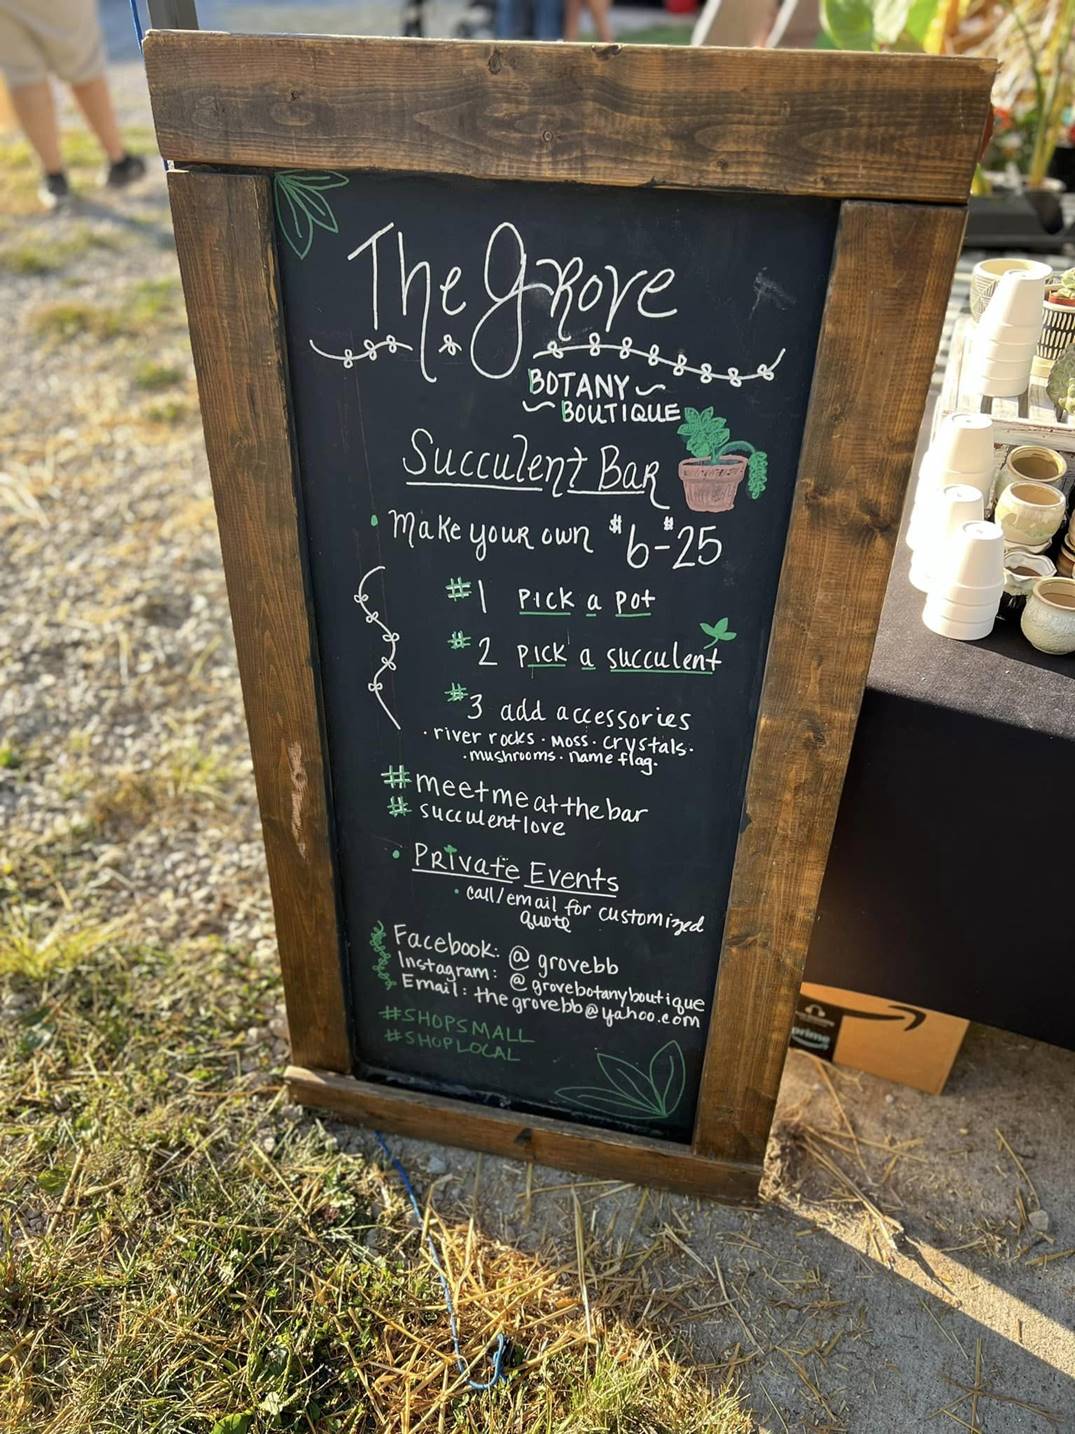 The Grove
BOTANY
BOUTIQUE
Succulent Bar
• Make your own $6-$25
#1 pick a pot
#2 pick a succulent
#3 add accessories
• river rocks • moss • crystals •
• mushrooms • name flag •
#meetmeatthebar
# succulentlove
• Private Events
• call/email for customized
quote
Facebook: @grovebb
Instagram: @grovebotanyboutique
Email: thegrovebb@yahoo.com
#SHOPSMALL
#SHOPLOCAL
prime